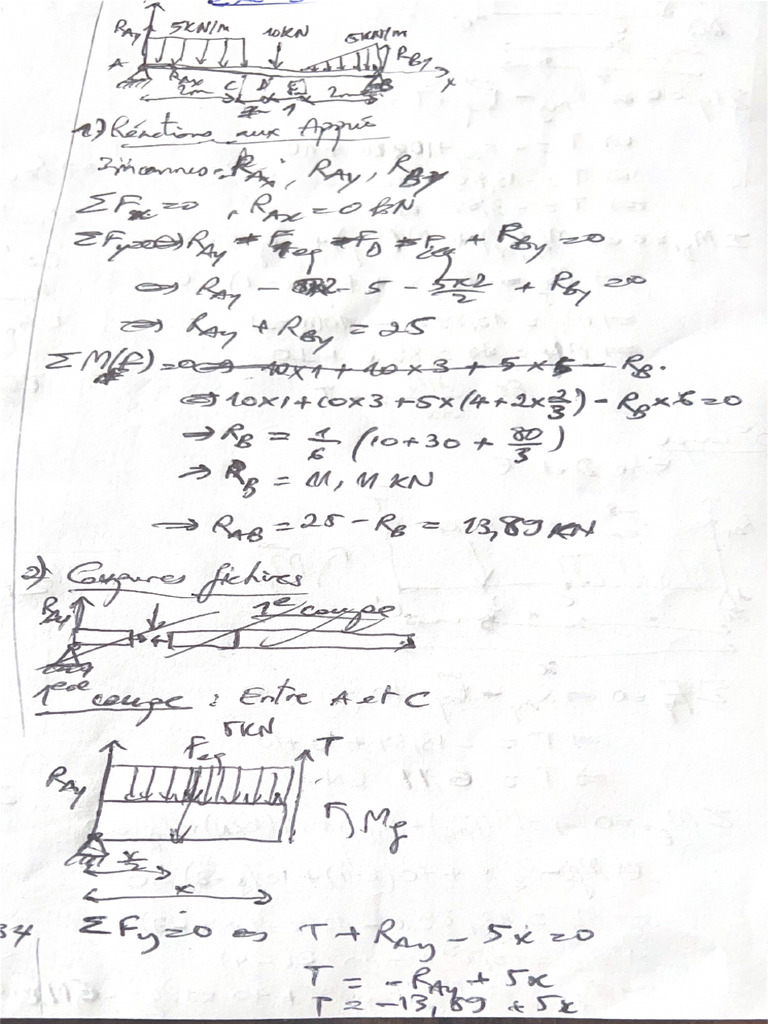 RAy 5KN/m 10KN 5KN/m RBy
A RAx C D E B x
2m 1 2m
1) Réactions aux Appuis
3 inconnues: RAx, RAy, RBy
ΣFx=0, RAx=0 kN
ΣFy=0 ⇔ RAy + Feq + FD + Feq + RBy = 0
⇔ RAy - - 5 - 5x2/2 + RBy = 0
⇒ RAy + RBy = 25
ΣM(f) = 0 ⇔ 10x1 + 10x3 + 5x - RB.
⇔ 10x1 + 10x3 + 5x(4+2x2/3) - RB x 6 = 0
⇒ RB = 1/6 (10+30+80/3)
⇒ RB = 11,11 KN
⇒ RAB = 25 - RB = 13,89 KN
2) Coupures fictives
RAy 1e coupe
1ère coupe : Entre A et C
5KN
Feq T
RAy Mf
x/2
x
34 ΣFy=0 ⇔ T + RAy - 5x = 0
T = -RAy + 5x
T = -13,89 + 5x